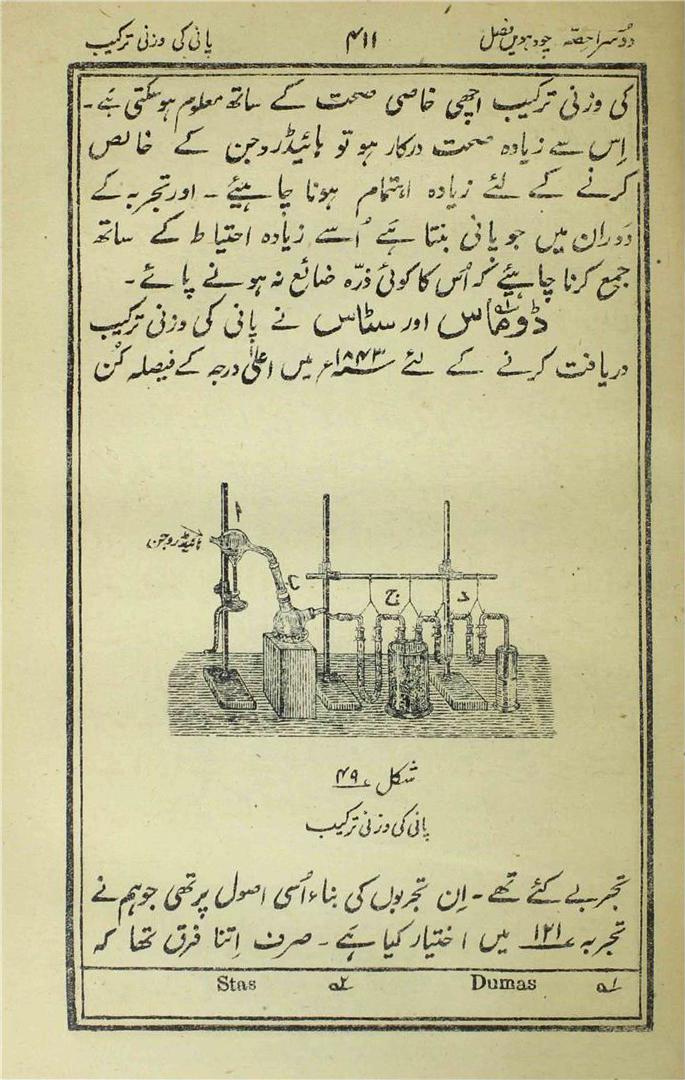 دوسرا حصہ چودھویں فصل ۴۱۱ پانی کی وزنی ترکیب
کی وزنی ترکیب اچھی خاصی صحت کے ساتھ معلوم ہوسکتی ہَے۔
اِس سے زیادہ صحت درکار ہو تو ہائیڈروجن کے خالص
کرنے کے لئے زیادہ اہتمام ہونا چاہیئے۔ اور تجربہ کے
دَوران میں جو پانی بنتا ہَے اُسے زیادہ احتیاط کے ساتھ
جمع کرنا چاہیئے کہ اُس کا کوئی ذرّہ ضائع نہ ہونے پائے۔
ڈوماس۱ اور سٹاس نے پانی کی وزنی ترکیب
دریافت کرنے کے لئے ۱۸۴۳ء میں اعلیٰ درجہ کے فیصلہ کُن
ہائیڈروجن
ا
ج
د
شکل ۴۹
پانی کی وزنی ترکیب
تجربے کئے تھے۔ اِن تجربوں کی بناء اُسی اصول پر تھی جو ہم نے
تجربہ ۱۲۱ میں اختیار کیا ہَے۔ صرف اِتنا فرق تھا کہ
۱ Dumas ۲ Stas